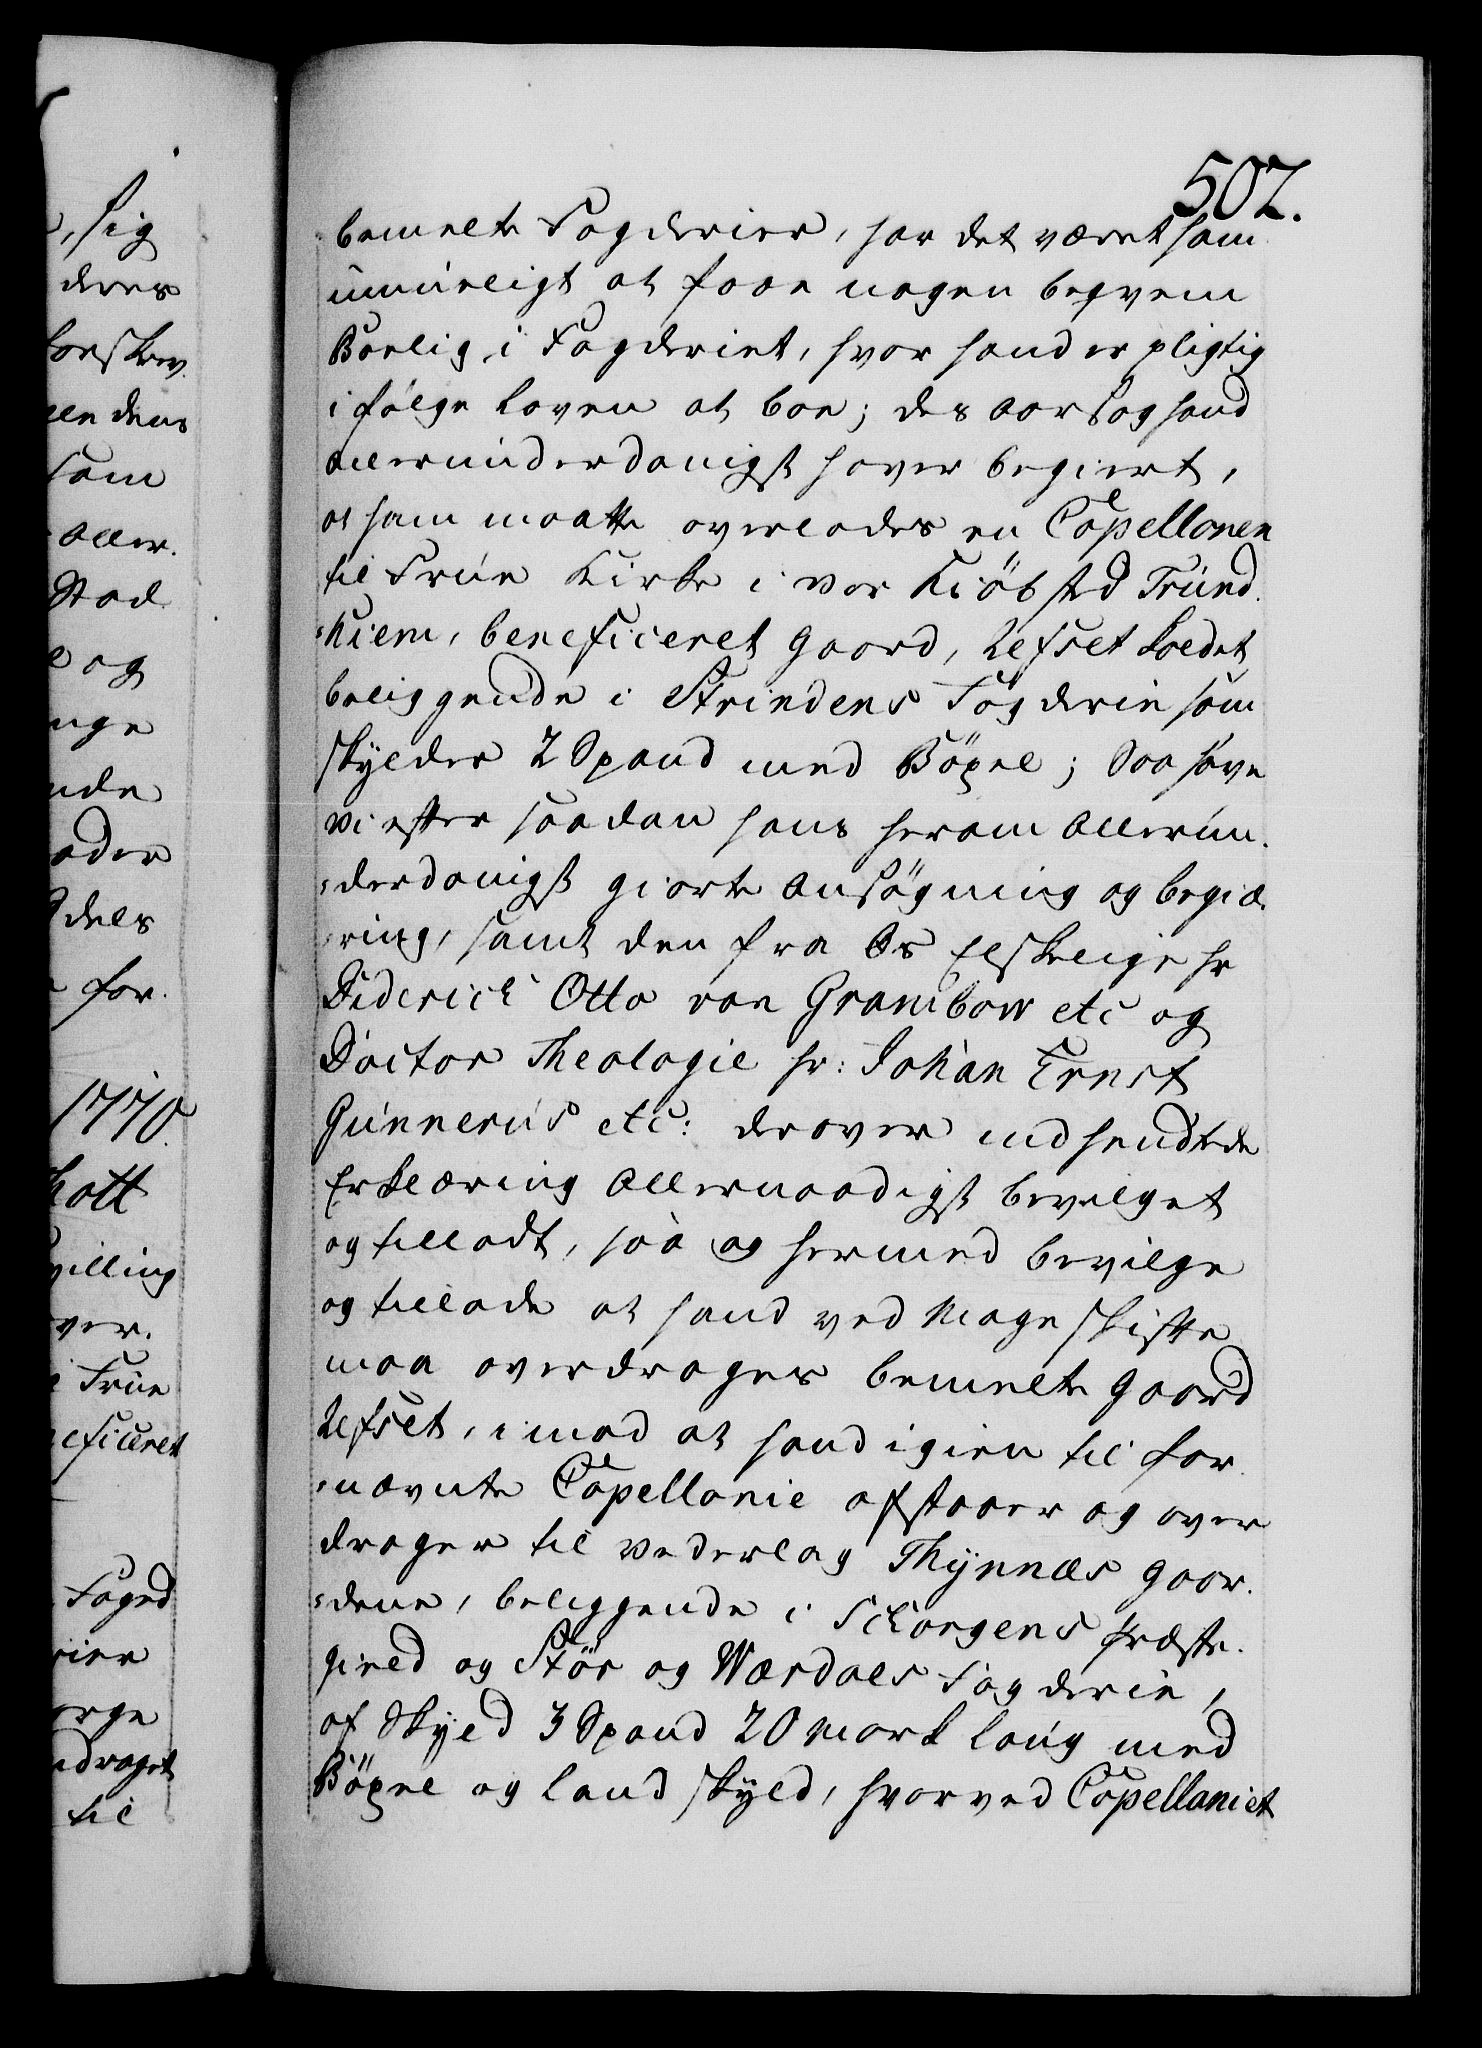 507.
bemelte Fogderier, har det været ham
umueligt at faae nogen beqvem
Boelig i Fogderiet, hvor hand er pligtig
i følge Loven at boe; des Aarsag hand
allerunderdanigst haver begiert,
at ham maatte overlades en Capellanen
til Frue Kirke i vor Kiöbsted Trund-
=hiem, beneficeret Gaard, Lefset kaldet
beliggende i Strindens Fogderie som
skylder 2 Spand med Böxel; Saa have
vi efter saadan hans herom Allerun-
=derdanigst giorte Ansögning og begiæ-
=ring, samt den fra Os Elskelige Hr
Diderich Otto von Grambow etc og
Doctor Theologie Hr: Johan Ernst
Gunnerus etc: derover indsendte
Erklæring Allernaadigst bevilget
og tilladt, saa og hermed bevilge
og tillade at hand ved Mageskifte
maa overdrages bemelte Gaard
Lefset, imod at hand igien til for-
=nævnte Capellanie afstaaer og over
drager til Vederlag Thynnæs Gaar-
=dene, beliggende i Schongens Præste-
gield og Stör og Værdals Fogderie,
af Skyld 3 Spand 20 Mark laug med
Böxel og Landskyld, hvorved Capellaniet
, sig
deres
som
Aller-
Stad
og
for-
1770.
ver-
Frue
Foged
til